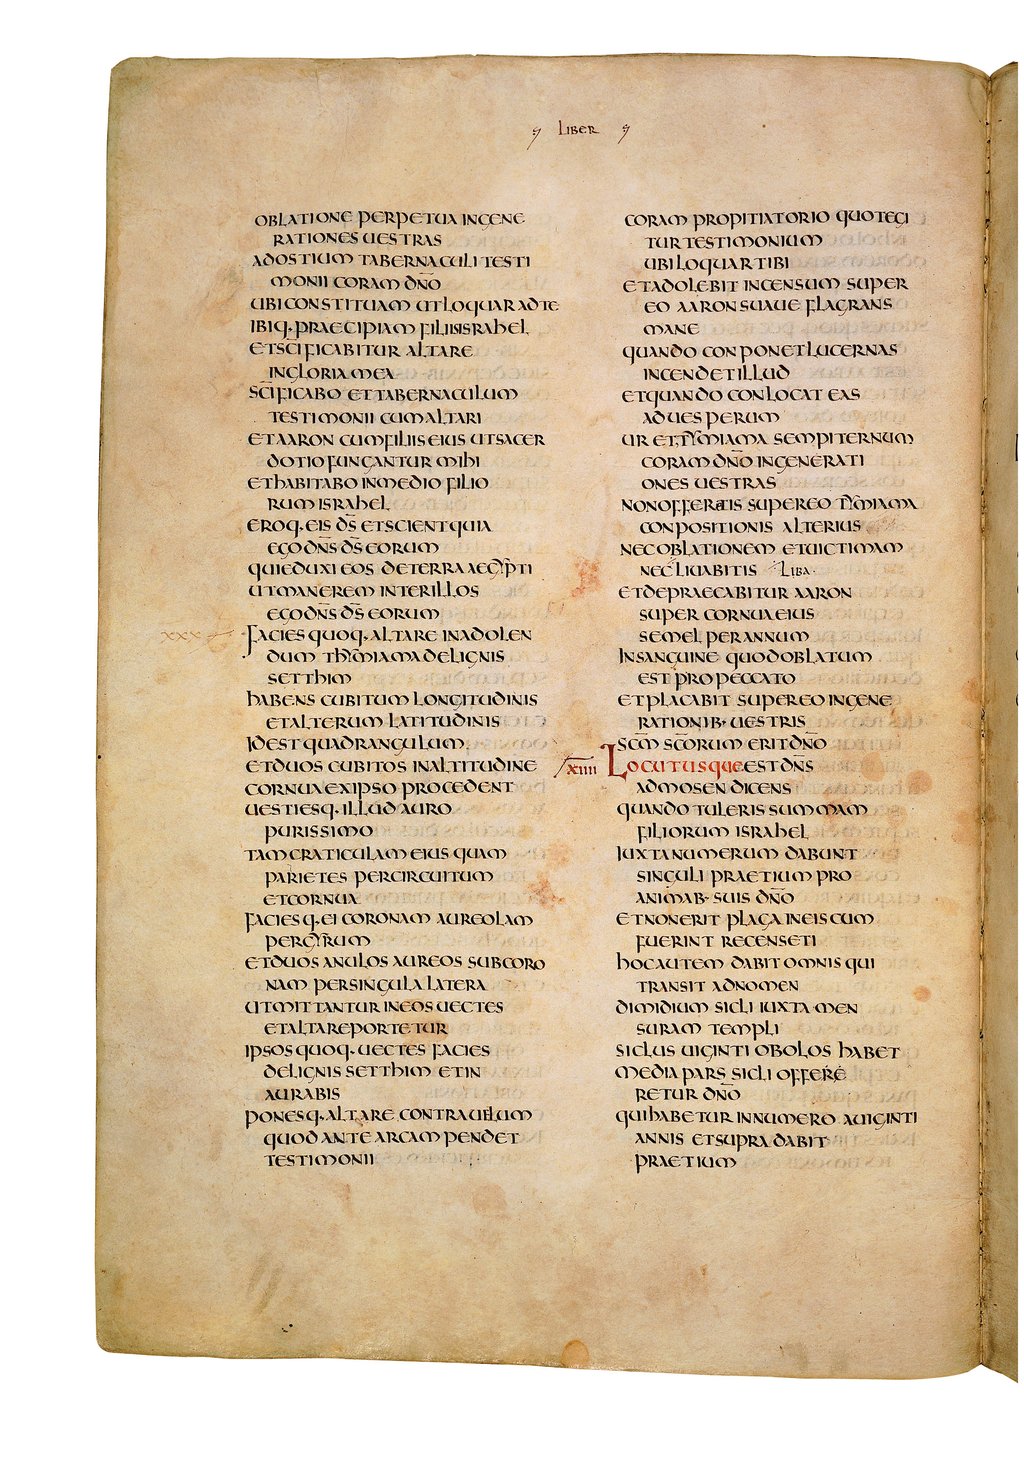 LIBER
OBLATIONE PERPETUA INGENE
RATIONES UESTRAS
ADOSTIUM TABERNACULI TESTI
MONII CORAM DN̅O
UBI CONSTITUAM UT LOQUAR AD TE
IBIQ· PRAECIPIAM FILIIS ISRAHEL
ET SC̅IFICABITUR ALTARE
IN GLORIA MEA
SC̅IFICABO ET TABERNACULUM
TESTIMONII CUM ALTARI
ET AARON CUM FILIIS EIUS UT SACER
DOTIO FUNGANTUR MIHI
ET HABITABO IN MEDIO FILIO
RUM ISRAHEL
EROQ· EIS DS̅ ET SCIENT QUIA
EGO DN̅S DS̅ EORUM
QUI EDUXI EOS DE TERRA AEGYPTI
UT MANEREM INTER ILLOS
EGO DN̅S DS̅ EORUM
XXX FACIES QUOQ· ALTARE IN ADOLEN
DUM THYMIAMA DE LIGNIS
SETTHIM
HABENS CUBITUM LONGITUDINIS
ET ALTERUM LATITUDINIS
IDEST QUADRANGULUM
ET DUOS CUBITOS IN ALTITUDINE
CORNUA EX IPSO PROCEDENT
UESTIESQ· ILLUD AURO
PURISSIMO
TAM CRATICULAM EIUS QUAM
PARIETES PER CIRCUITUM
ET CORNUA
FACIESQ· EI CORONAM AUREOLAM
PER GYRUM
ET DUOS ANULOS AUREOS SUB CORO
NAM PER SINGULA LATERA
UT MITTANTUR IN EOS UECTES
ET ALTARE PORTETUR
IPSOS QUOQ· UECTES FACIES
DE LIGNIS SETTHIM ET IN
AURABIS
PONESQ· ALTARE CONTRA UELUM
QUOD ANTE ARCAM PENDET
TESTIMONII
CORAM PROPITIATORIO QUO TEGI
TUR TESTIMONIUM
UBI LOQUAR TIBI
ET ADOLEBIT INCENSUM SUPER
EO AARON SUAUE FLAGRANS
MANE
QUANDO CONPONET LUCERNAS
INCENDET ILLUD
ET QUANDO CONLOCAT EAS
AD UESPERUM
URET THYMIAMA SEMPITERNUM
CORAM DN̅O IN GENERATI
ONES UESTRAS
NON OFFERETIS SUPER EO THYMIAMA
CONPOSITIONIS ALTERIUS
NEC OBLATIONEM ET UICTIMAM
NEC LIUABITIS LIBA·
ET DEPRAECABITUR AARON
SUPER CORNUA EIUS
SEMEL PER ANNUM
IN SANGUINE QUOD OBLATUM
EST PRO PECCATO
ET PLACABIT SUPER EO IN GENE
RATIONIB· UESTRIS
SC̅M SC̅ORUM ERIT DN̅O
XIIII LOCUTUSQUE EST DN̅S
AD MOSEN DICENS
QUANDO TULERIS SUMMAM
FILIORUM ISRAHEL
IUXTA NUMERUM DABUNT
SINGULI PRAETIUM PRO
ANIMAB· SUIS DN̅O
ET NON ERIT PLAGA IN EIS CUM
FUERINT RECENSETI
HOC AUTEM DABIT OMNIS QUI
TRANSIT AD NOMEN
DIMIDIUM SICLI IUXTA MEN
SURAM TEMPLI
SICLUS UIGINTI OBOLOS HABET
MEDIA PARS SICLI OFFERE
RETUR DN̅O
QUI HABETUR IN NUMERO A UIGINTI
ANNIS ET SUPRA DABIT
PRAETIUM